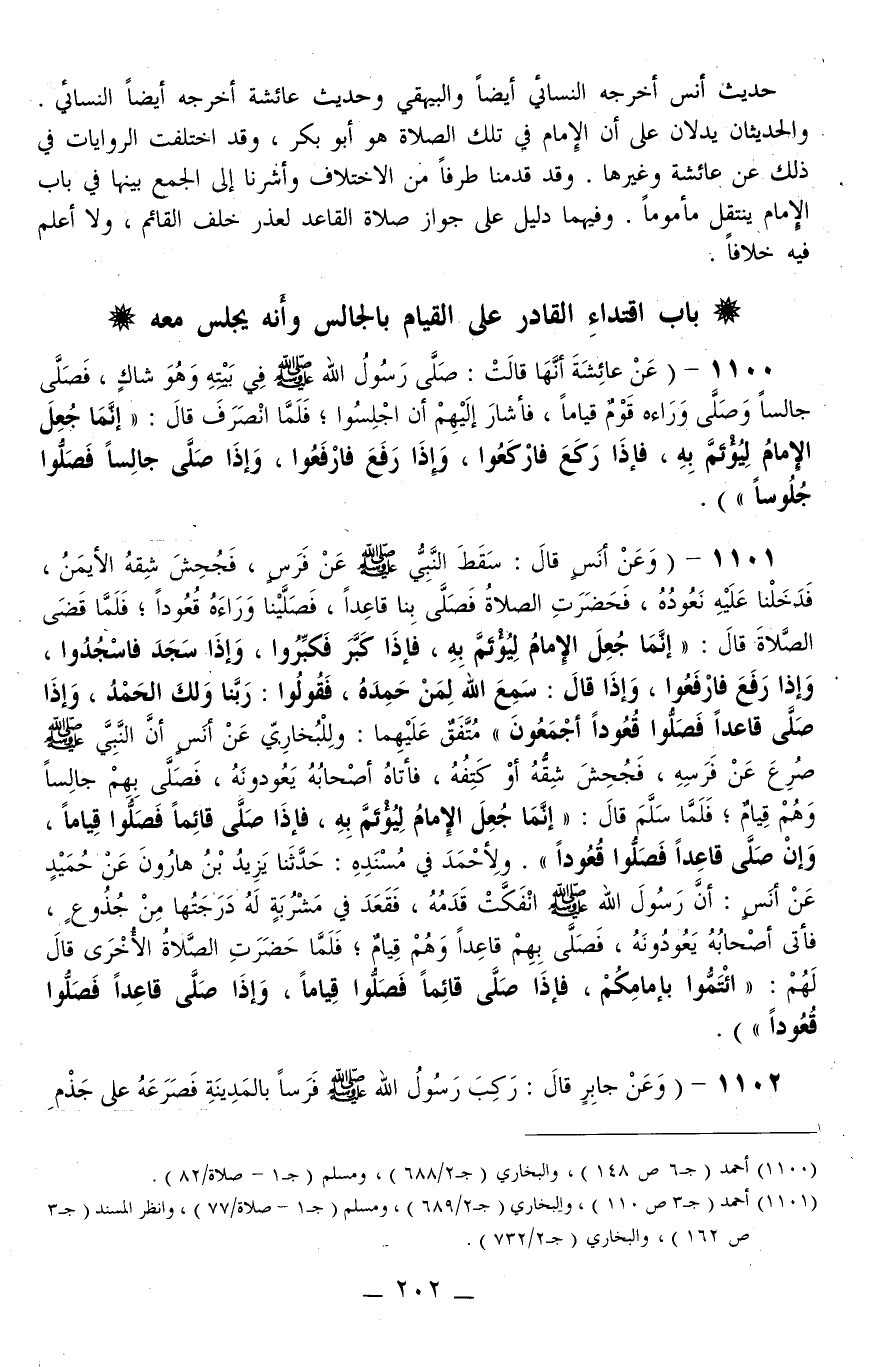 حديث أنس أخرجه النسائي أيضاً والبيهقي وحديث عائشة أخرجه أيضاً النسائي .
والحديثان يدلان على أن الإمام في تلك الصلاة هو أبو بكر ، وقد اختلفت الروايات في
ذلك عن عائشة وغيرها . وقد قدمنا طرفاً من الاختلاف وأشرنا إلى الجمع بينها في باب
الإمام ينتقل مأموماً . وفيهما دليل على جواز صلاة القاعد لعذر خلف القائم ، ولا أعلم
فيه خلافاً .
باب اقتداءِ القادر على القيام بالجالس وأَنه يجلس معه
١١٠٠ - ( عَنْ عائِشَةَ أنَّهَا قالَتْ : صَلَّى رَسُولُ الله ﷺ فِي بَيْتِهِ وَهُوَ شاكٍ ، فَصَلَّى
جالساً وَصَلَّى وَرَاءه قَوْمٌ قياماً ، فأشارَ إلَيْهِمْ أن اجْلِسُوا ؛ فَلَمَّا انْصَرَفَ قالَ : « إنَّمَا جُعِلَ
الإمامُ لِيُؤْتَمَّ بِهِ ، فإذَا رَكَعَ فارْكَعُوا ، وَإِذَا رَفَعَ فارْفَعُوا ، وَإذَا صَلَّى جالِساً فَصَلُّوا
جُلُوساً » ) .
١١٠١ - ( وَعَنْ أنَسٍ قالَ : سَقَطَ النَّبِيُّ ﷺ عَنْ فَرَسٍ ، فَجُحِشَ شِقهُ الأيمَنُ ،
فَدَخَلْنا عَلَيْهِ نَعُودُهُ ، فَحَضَرَتِ الصلاةُ فَصَلَّى بنا قاعداً ، فَصَلَّيْنا وَرَاءَهُ قُعُوداً ؛ فَلَمَّا قَضَى
الصَّلاةَ قالَ : « إنَّمَا جُعِلَ الإمامُ لِيُؤْتَمَّ بِهِ ، فإذَا كَبَّرَ فَكبِّرُوا ، وَإذَا سَجَدَ فاسْجُدُوا ،
وَإذا رَفَعَ فارْفَعُوا ، وَإذَا قالَ : سَمِعَ الله لِمَنْ حَمِدَهُ ، فَقُولُوا : رَبَّنا وَلكَ الحَمْدُ ، وَإذَا
صَلَّى قاعداً فَصَلُّوا قُعُوداً أجْمَعُونَ » مُتَّفَقٌ عَلَيْهِما : وللْبُخاريّ عَنْ أنَسٍ أنَّ النَّبيَّ ﷺ
صُرِعَ عَنْ فَرَسِهِ ، فَجُحِشَ شِقُّهُ أوْ كَتِفُهُ ، فأتاهُ أصْحابُهُ يَعُودونَهُ ، فَصَلَّى بِهِمْ جالساً
وَهُمْ قِيامٌ ؛ فَلَمَّا سَلَّمَ قالَ : « إنَّمَا جُعِلَ الإمامُ لِيُؤْتَمَّ بِهِ ، فإذَا صَلَّى قائماً فَصَلُّوا قِياماً ،
وَإنْ صَلَّى قاعداً فَصَلُّوا قُعُوداً » . ولِأحْمَدَ في مُسْنَدِهِ : حَدَّثَنا يَزِيدُ بْنُ هارُونَ عَنْ حُمَيْدٍ
عَنْ أنَسٍ : أنَّ رَسُولَ الله ﷺ انْفَكَّتْ قَدَمُهُ ، فَقَعَدَ في مَشْرُبَةٍ لَهُ دَرَجَتُها مِنْ جُذُوعٍ ،
فأتى أصْحابُهُ يَعُودُونَهُ ، فَصَلَّى بِهِمْ قاعداً وَهُمْ قِيامٌ ؛ فَلَمَّا حَضَرَتِ الصَّلاةُ الأُخْرَى قالَ
لَهُمْ : « ائْتَمُّوا بإمامِكُمْ ، فإذَا صَلَّى قائماً فَصَلُّوا قِياماً ، وَإذَا صَلَّى قاعِداً فَصَلُّوا
قُعُوداً » ) .
١١٠٢ - ( وَعَنْ جابِرٍ قالَ : رَكِبَ رَسُولُ الله ﷺ فَرَساً بالمَدِينَةِ فَصَرَعَهُ على جَذْمِ
(١١٠٠) أحمد ( جـ٦ ص ١٤٨ ) ، والبخاري ( جـ٦٨٨/٢ ) ، ومسلم ( جـ١ - صلاة/٨٢ ) .
(١١٠١) أحمد ( جـ٣ ص ١١٠ ) ، والبخاري ( جـ٦٨٩/٢ ) ، ومسلم ( جـ١ - صلاة/٧٧ ) ، وانظر المسند ( جـ٣
ص ١٦٢ ) ، والبخاري ( جـ٧٣٢/٢ ) .
ـ ٢٠٢ ـ